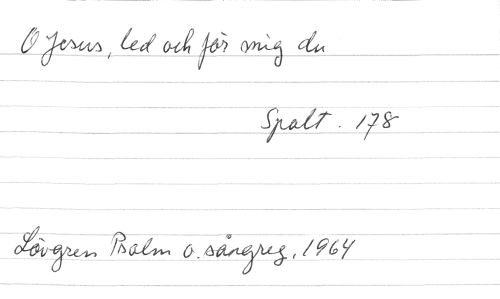 O Jesus, led och för mig du
Spalt. 178
Lövgren Psalm o. sångreg, 1964